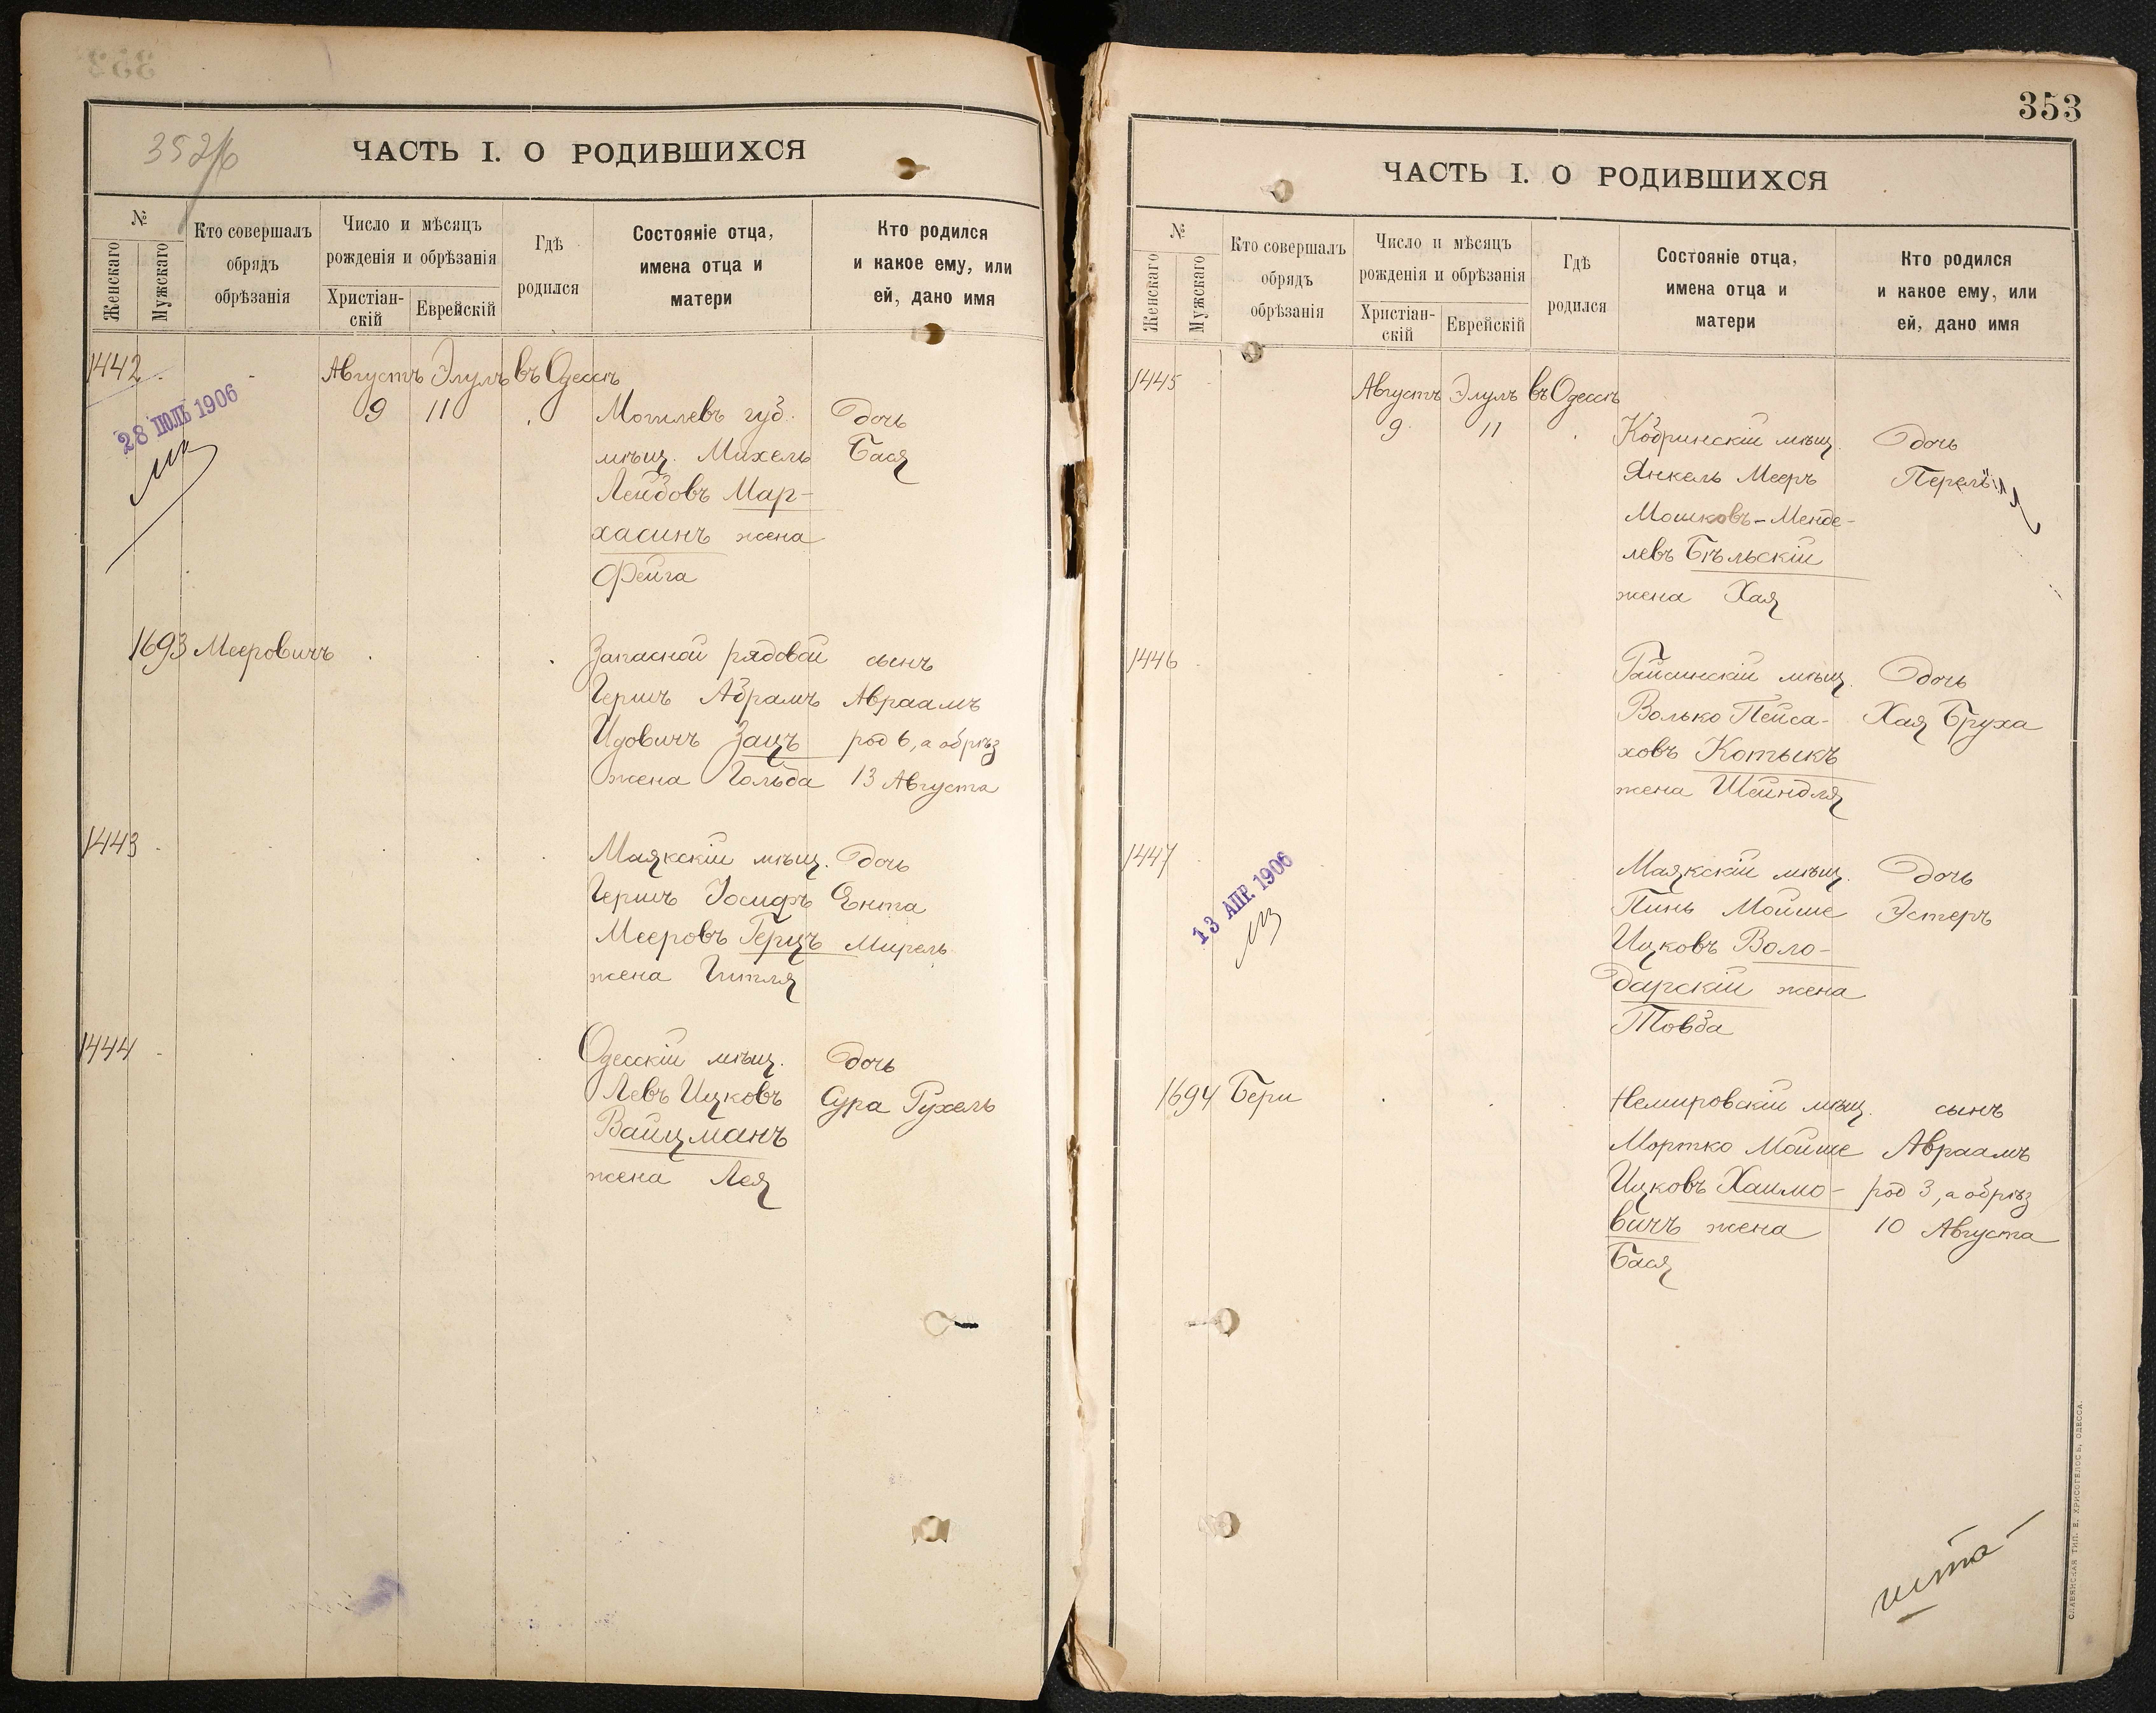 352/б
ЧАСТЬ I. О РОДИВШИХСЯ
№
Женскаго
Мужскаго
Кто совершалъ
обрядъ
обрѣзанія
Число и мѣсяцъ
рожденія и обрѣзанія
Христіан-
скій
Еврейскій
Гдѣ
родился
Состояніе отца,
имена отца и
матери
Кто родился
и какое ему, или
ей, дано имя
1442
Августъ Элулъ въ Одессѣ
28 ІЮЛЬ 1906
9 11 Могилевъ губ. дочь
мѣщ. Михель Бася
Лейбовъ Мар-
хасинъ жена
Фейга
1693 Мееровичъ Запасной рядовой сынъ
Гершъ Абрамъ Авраамъ
Идовичъ Зацъ род 6, а обрѣз
жена Гольда 13 Августа
1443 Маякскій мѣщ. дочь
Гершъ Іосифъ Ента
Мееровъ Герцъ Мирель
жена Гитля
1444 Одесскій мѣщ. дочь
Левъ Ицковъ Сура Рухель
Вайцманъ
жена Лея
353
ЧАСТЬ I. О РОДИВШИХСЯ
№
Женскаго
Мужскаго
Кто совершалъ
обрядъ
обрѣзанія
Число и мѣсяцъ
рожденія и обрѣзанія
Христіан-
скій
Еврейскій
Гдѣ
родился
Состояніе отца,
имена отца и
матери
Кто родился
и какое ему, или
ей, дано имя
1445
Августъ Элулъ въ Одессѣ
9 11 Кобринскій мѣщ. дочь
Янкель Мееръ Перель
Мошковъ-Менде-
левъ Бѣльскій
жена Хая
1446 Гайсинскій мѣщ. дочь
Волько Пейса- Хая Бруха
ховъ Котыкъ
жена Шейндля
1447 Маякскій мѣщ. дочь
13 АПР. 1906
Пинь Мойше Эстеръ
Ицковъ Воло-
дарскій жена
Товба
1694 Бери Немировскій мѣщ. сынъ
Мортко Мойше Авраамъ
Ицковъ Хаимо- род 3, а обрѣз
вичъ жена 10 Августа
Бася
СЛАВЯНСКАЯ ТИП. Е. ХРИСОГЕЛОСЪ, ОДЕССА.